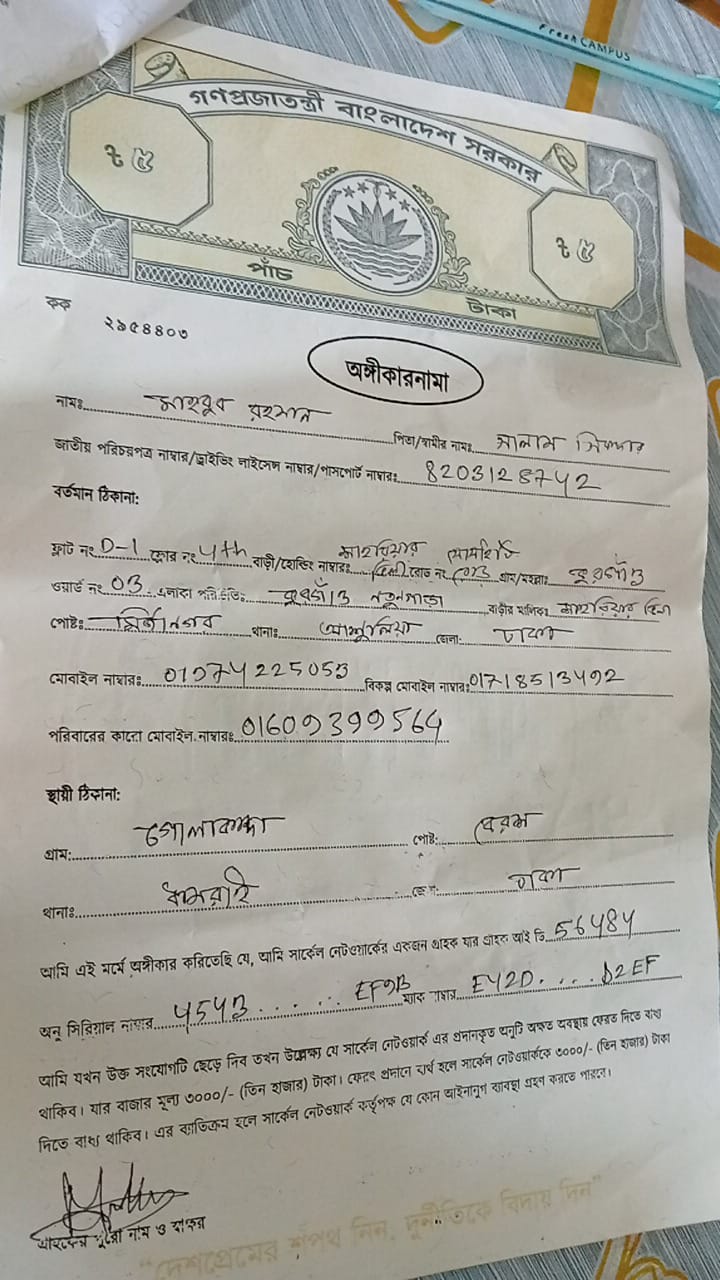 Fresh CAMPUS
গণপ্রজাতন্ত্রী বাংলাদেশ সরকার
৳ ৫ ৳ ৫
পাঁচ টাকা
কক ২৯৫৪৪০৩
অঙ্গীকারনামা
নামঃ মাহবুব রহমান পিতা/স্বামীর নামঃ সালাম সিকদার
জাতীয় পরিচয়পত্র নাম্বার/ড্রাইভিং লাইসেন্স নাম্বার/পাসপোর্ট নাম্বারঃ 8203128742
বর্তমান ঠিকানা:
ফ্লাট নং D-1 ফ্লোর নং 4th বাড়ী/হোল্ডিং নাম্বারঃ রোড নং গ্রাম/মহল্লাঃ
ওয়ার্ড নং 03 এলাকা নতুনপাড়া বাড়ীর মালিকঃ
পোষ্টঃ মির্জানগর থানাঃ আশুলিয়া জেলা: ঢাকা
মোবাইল নাম্বারঃ 01974225053 বিকল্প মোবাইল নাম্বারঃ 01718513492
পরিবারের কারো মোবাইল নাম্বারঃ 01609399564
স্থায়ী ঠিকানা:
গ্রাম: গোলাকান্দা পোষ্ট:
থানাঃ ধামরাই জেলা: ঢাকা
আমি এই মর্মে অঙ্গীকার করিতেছি যে, আমি সার্কেল নেটওয়ার্কের একজন গ্রাহক যার গ্রাহক আই ডি 56484
অনু সিরিয়াল নাম্বার 4543...... EF9B ম্যাক নাম্বার E42D.... D2EF
আমি যখন উক্ত সংযোগটি ছেড়ে দিব তখন উল্লেক্ষ্য যে সার্কেল নেটওয়ার্ক এর প্রদানকৃত অনুটি অক্ষত অবস্থায় ফেরত দিতে বাধ্য
থাকিব। যার বাজার মূল্য ৩০০০/- (তিন হাজার) টাকা। ফেরৎ প্রদানে ব্যর্থ হলে সার্কেল নেটওয়ার্ককে ৩০০০/- (তিন হাজার) টাকা
দিতে বাধ্য থাকিব। এর ব্যতিক্রম হলে সার্কেল নেটওয়ার্ক কর্তৃপক্ষ যে কোন আইনানুগ ব্যবস্থা গ্রহন করতে পারবে।
গ্রাহকের পুরো নাম ও স্বাক্ষর
"দেশপ্রেমের শপথ নিন, দুর্নীতিকে বিদায় দিন"